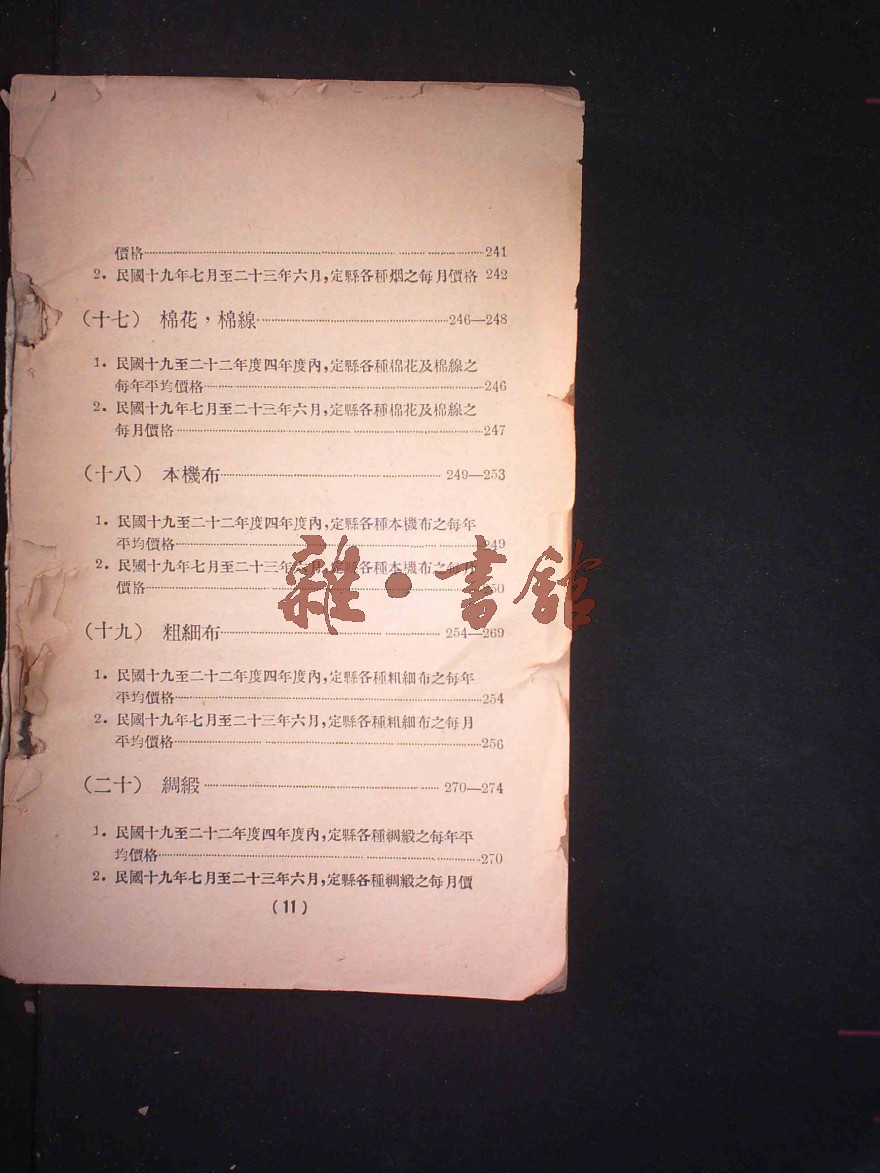 價格……241
2. 民國十九年七月至二十三年六月,定縣各種烟之每月價格 242
(十七) 棉花,棉線……246—248
1. 民國十九至二十二年度四年度內,定縣各種棉花及棉線之
每年平均價格……246
2. 民國十九年七月至二十三年六月,定縣各種棉花及棉線之
每月價格……247
(十八) 本機布……249—253
1. 民國十九至二十二年度四年度內,定縣各種本機布之每年
平均價格……249
2. 民國十九年七月至二十三年六月,定縣各種本機布之每月
價格……250
雜•書館
(十九) 粗細布……254—269
1. 民國十九至二十二年度四年度內,定縣各種粗細布之每年
平均價格……254
2. 民國十九年七月至二十三年六月,定縣各種粗細布之每月
平均價格……256
(二十) 綢緞……270—274
1. 民國十九至二十二年度四年度內,定縣各種綢緞之每年平
均價格……270
2. 民國十九年七月至二十三年六月,定縣各種綢緞之每月價
(11)